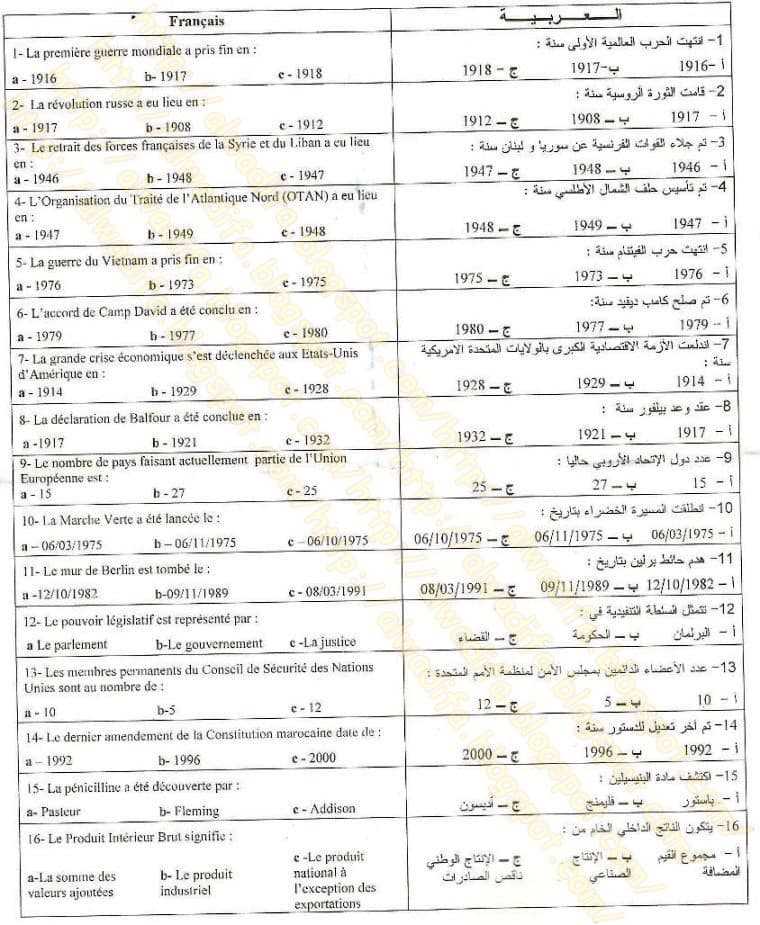 Français
العربية
1- La première guerre mondiale a pris fin en :
a - 1916 b- 1917 c - 1918
1- انتهت الحرب العالمية الأولى سنة :
أ -1916 ب-1917 ج - 1918
2- La révolution russe a eu lieu en :
a - 1917 b - 1908 c - 1912
2- قامت الثورة الروسية سنة :
أ - 1917 ب – 1908 ج – 1912
3- Le retrait des forces françaises de la Syrie et du Liban a eu lieu
en :
a - 1946 b - 1948 c - 1947
3- تم جلاء القوات الفرنسية عن سوريا و لبنان سنة :
أ - 1946 ب – 1948 ج – 1947
4- L'Organisation du Traité de l'Atlantique Nord (OTAN) a eu lieu
en :
a - 1947 b - 1949 c - 1948
4- تم تأسيس حلف الشمال الأطلسي سنة :
أ - 1947 ب – 1949 ج – 1948
5- La guerre du Vietnam a pris fin en :
a - 1976 b - 1973 c - 1975
5- انتهت حرب الفيتنام سنة :
أ - 1976 ب – 1973 ج – 1975
6- L'accord de Camp David a été conclu en :
a - 1979 b - 1977 c - 1980
6- تم صلح كامب ديفيد سنة:
أ - 1979 ب – 1977 ج – 1980
7- La grande crise économique s'est déclenchée aux Etats-Unis
d'Amérique en :
a - 1914 b - 1929 c - 1928
7- اندلعت الأزمة الاقتصادية الكبرى بالولايات المتحدة الامريكية
سنة :
أ - 1914 ب – 1929 ج – 1928
8- La déclaration de Balfour a été conclue en :
a -1917 b - 1921 c - 1932
8- عقد وعد بيلفور سنة :
أ - 1917 ب – 1921 ج – 1932
9- Le nombre de pays faisant actuellement partie de l'Union
Européenne est :
a - 15 b - 27 c - 25
9- عدد دول الإتحاد الأروبي حاليا :
أ - 15 ب – 27 ج – 25
10- La Marche Verte a été lancée le :
a – 06/03/1975 b – 06/11/1975 c – 06/10/1975
10- انطلقت المسيرة الخضراء بتاريخ :
أ - 06/03/1975 ب – 06/11/1975 ج – 06/10/1975
11- Le mur de Berlin est tombé le :
a -12/10/1982 b-09/11/1989 c - 08/03/1991
11- هدم حائط برلين بتاريخ :
أ – 12/10/1982 ب – 09/11/1989 ج – 08/03/1991
12- Le pouvoir législatif est représenté par :
a Le parlement b-Le gouvernement c -La justice
12- تتمثل السلطة التنفيدية في :
أ - البرلمان ب – الحكومة ج – القضاء
13- Les membres permanents du Conseil de Sécurité des Nations
Unies sont au nombre de :
a - 10 b-5 c - 12
13- عدد الأعضاء الدائمين بمجلس الأمن لمنظمة الأمم المتحدة :
أ - 10 ب – 5 ج – 12
14- Le dernier amendement de la Constitution marocaine date de :
a – 1992 b - 1996 c - 2000
14- تم أخر تعديل للدستور سنة :
أ - 1992 ب – 1996 ج – 2000
15- La pénicilline a été découverte par :
a- Pasteur b- Fleming c - Addison
15- اكتشف مادة البنيسيلين :
أ - باستور ب – فليمنج ج – أديسون
16- Le Produit Intérieur Brut signifie :
a-La somme des
valeurs ajoutées
b- Le produit
industriel
c -Le produit
national à
l'exception des
exportations
16- يتكون الناتج الداخلي الخام من :
أ - مجموع القيم
المضافة
ب – الإنتاج
الصناعي
ج – الإنتاج الوطني
ناقص الصادرات